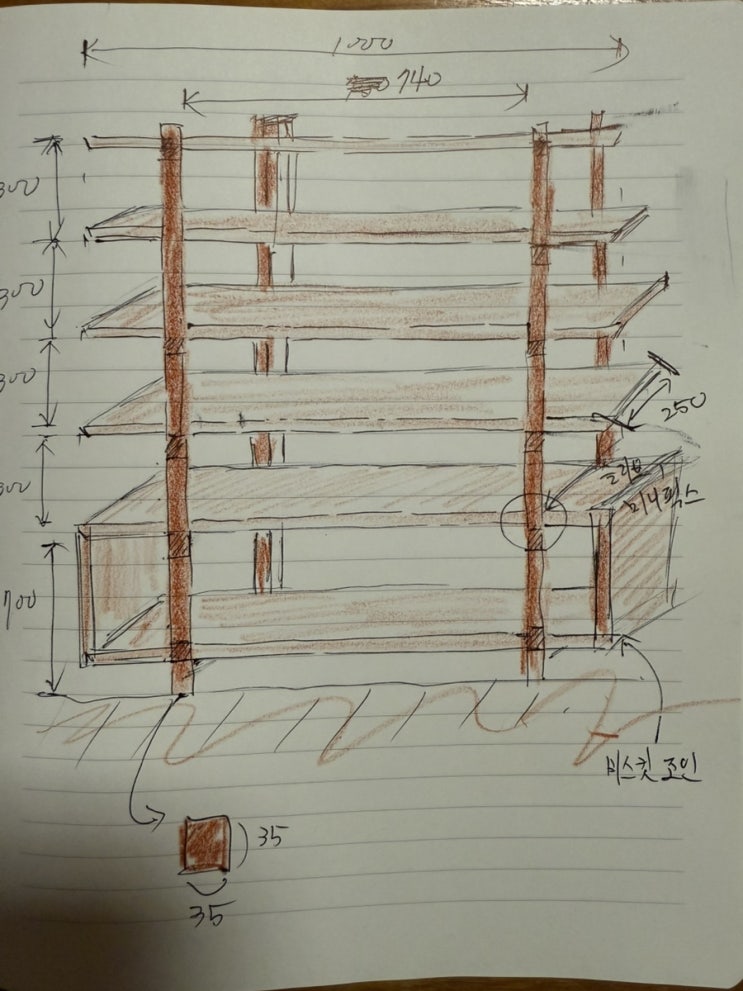 1000
740
300
300
300
300
700
250
슬리브
미니픽스
비스킷 조인
35
35